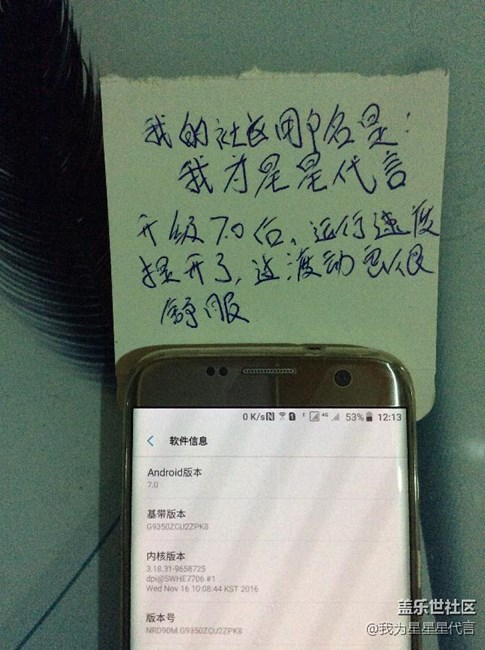 我的社区用户名是:
我为星星代言
升级7.0后、运行速度
提升了,过渡动画很
舒服
0 K/s N 4G 53% 12:13
软件信息
Android版本
7.0
基带版本
G9350ZCU2ZPK8
内核版本
3.18.31-9658725
dpi@SWHE7706 #1
Wed Nov 16 10:08:44 KST 2016
版本号
NRD90M.G9350ZCU2ZPK8
盖乐世社区
@我为星星星代言